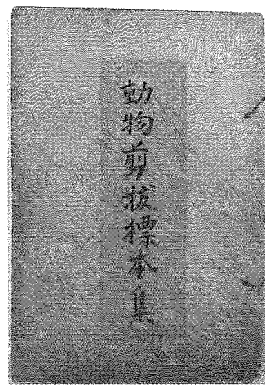 動物剪拔標本集